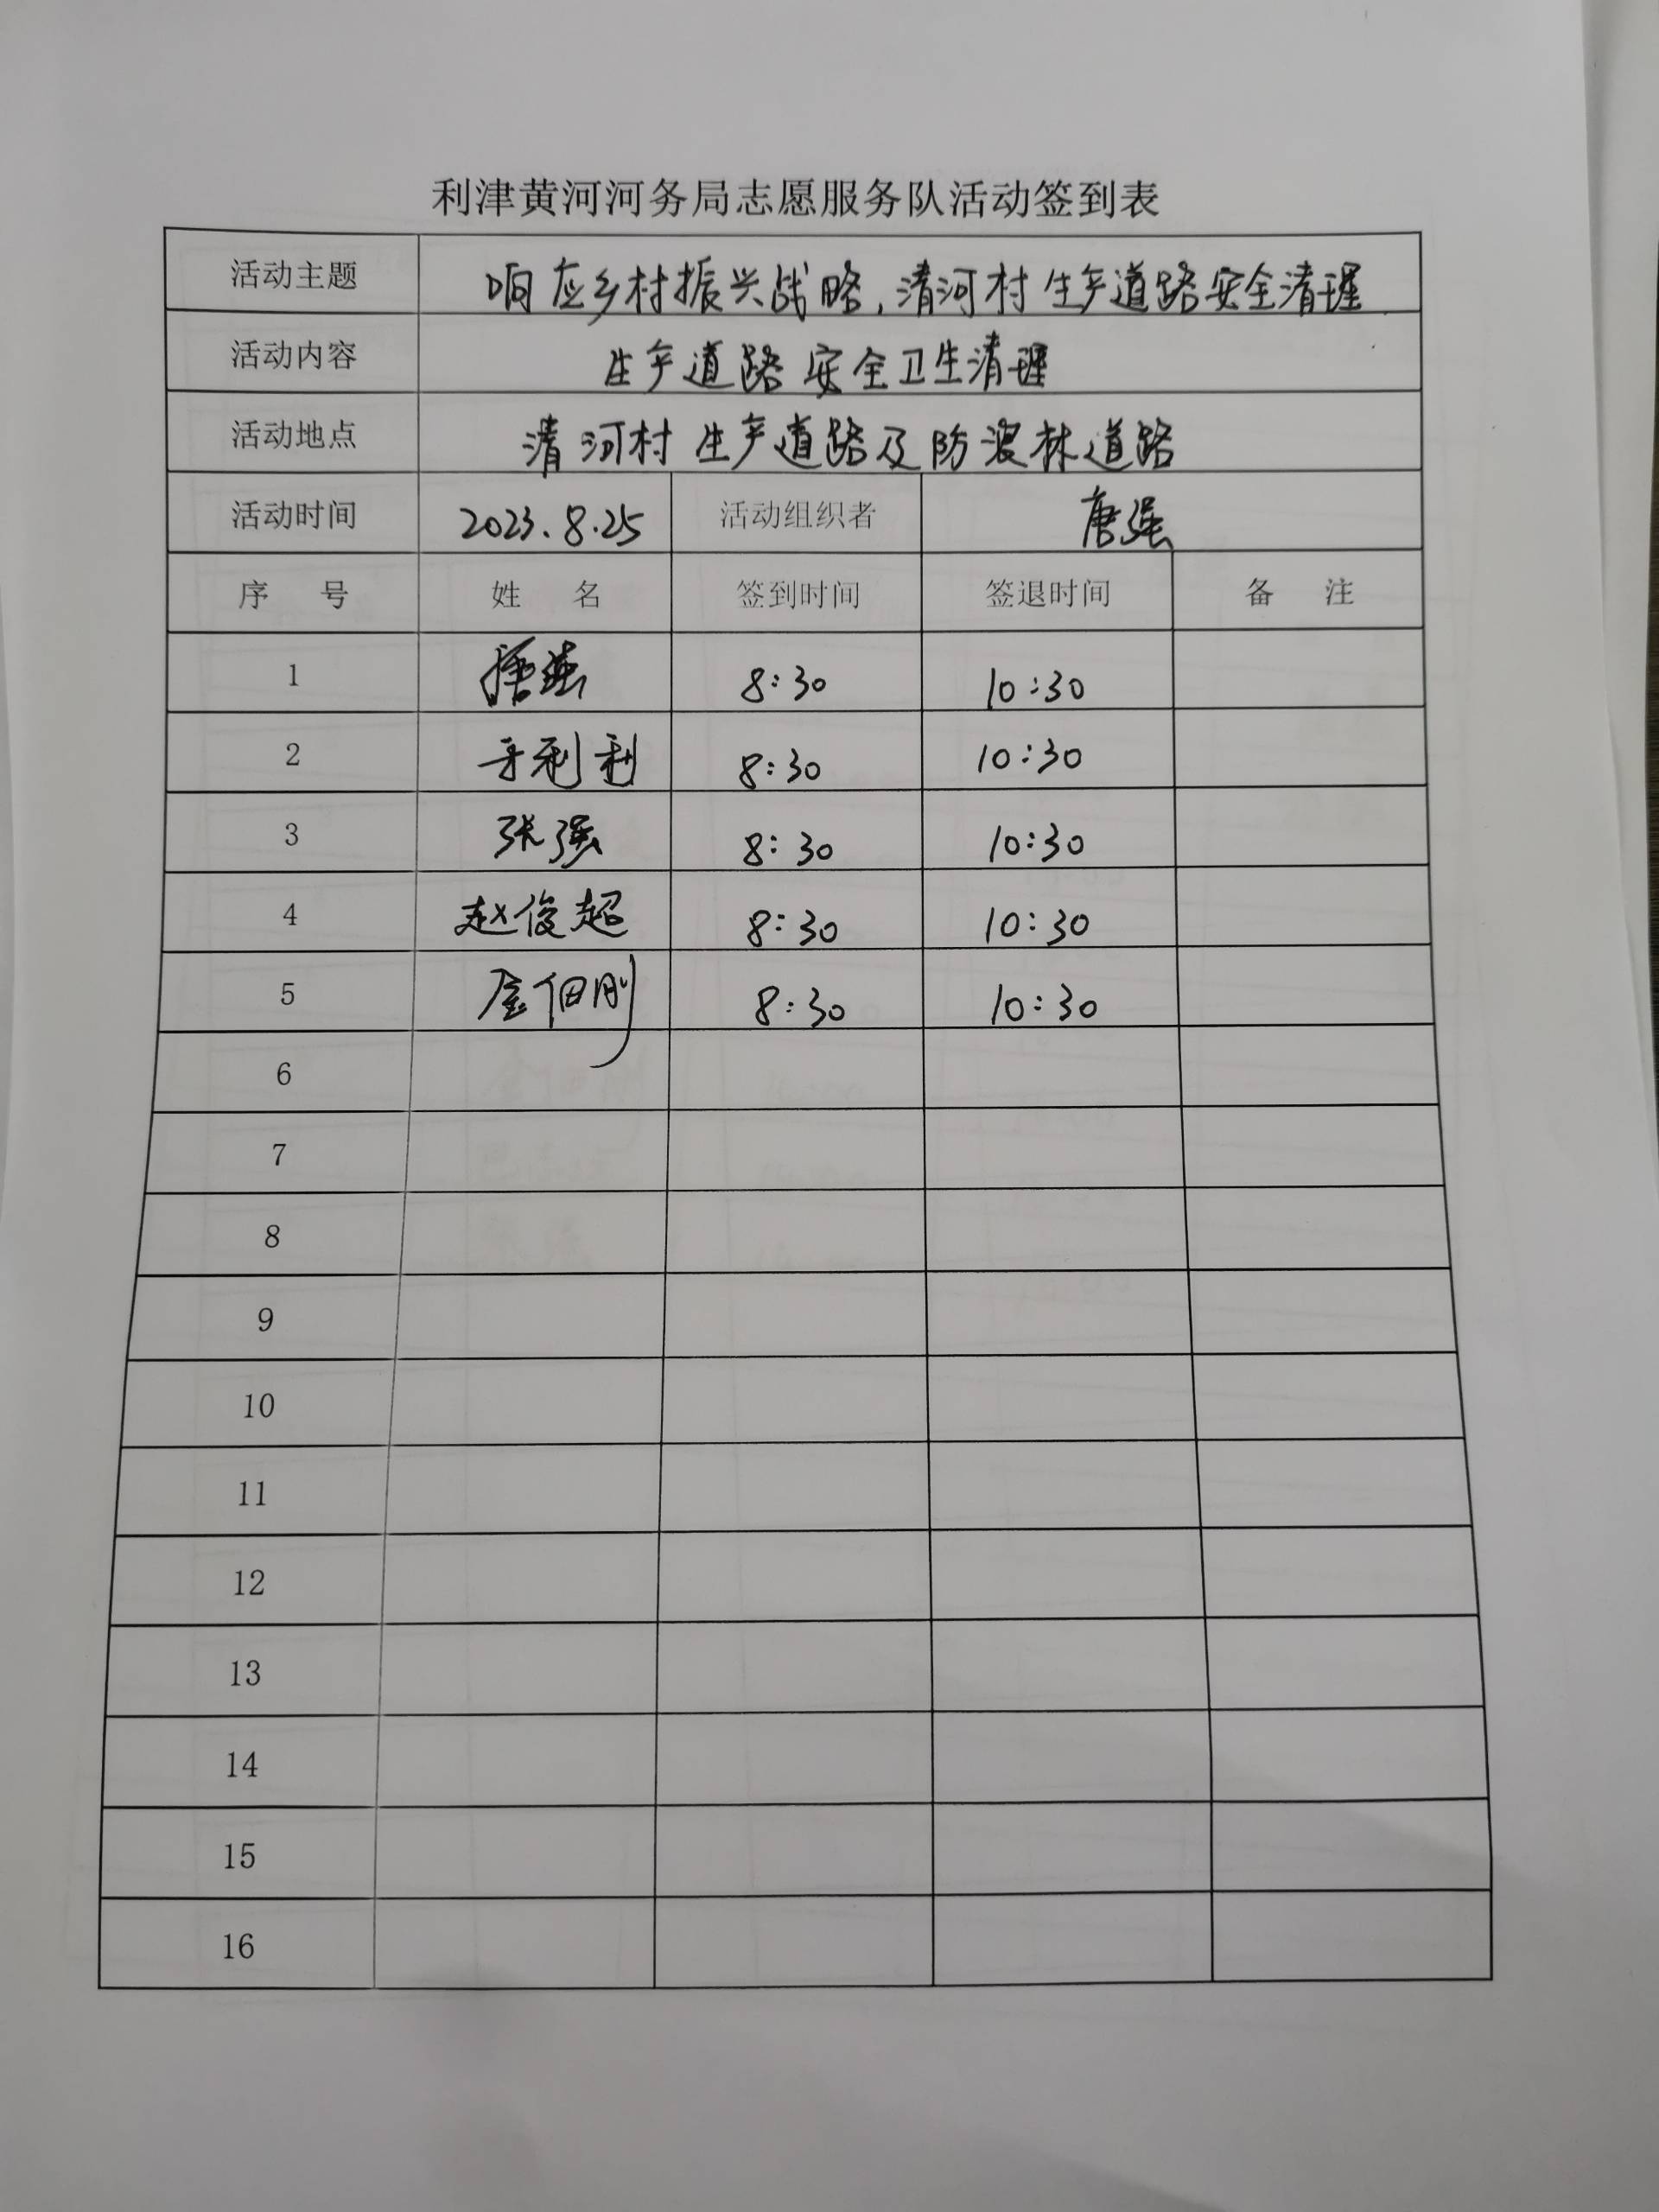 利津黄河河务局志愿服务队活动签到表
活动主题 响应乡村振兴战略,清河村生产道路安全清理
活动内容 生产道路安全卫生清理
活动地点 清河村生产道路及防浪林道路
活动时间 2023.8.25 活动组织者 唐强
序 号 姓 名 签到时间 签退时间 备 注
1 8:30 10:30
2 8:30 10:30
3 张强 8:30 10:30
4 赵俊超 8:30 10:30
5 8:30 10:30
6
7
8
9
10
11
12
13
14
15
16